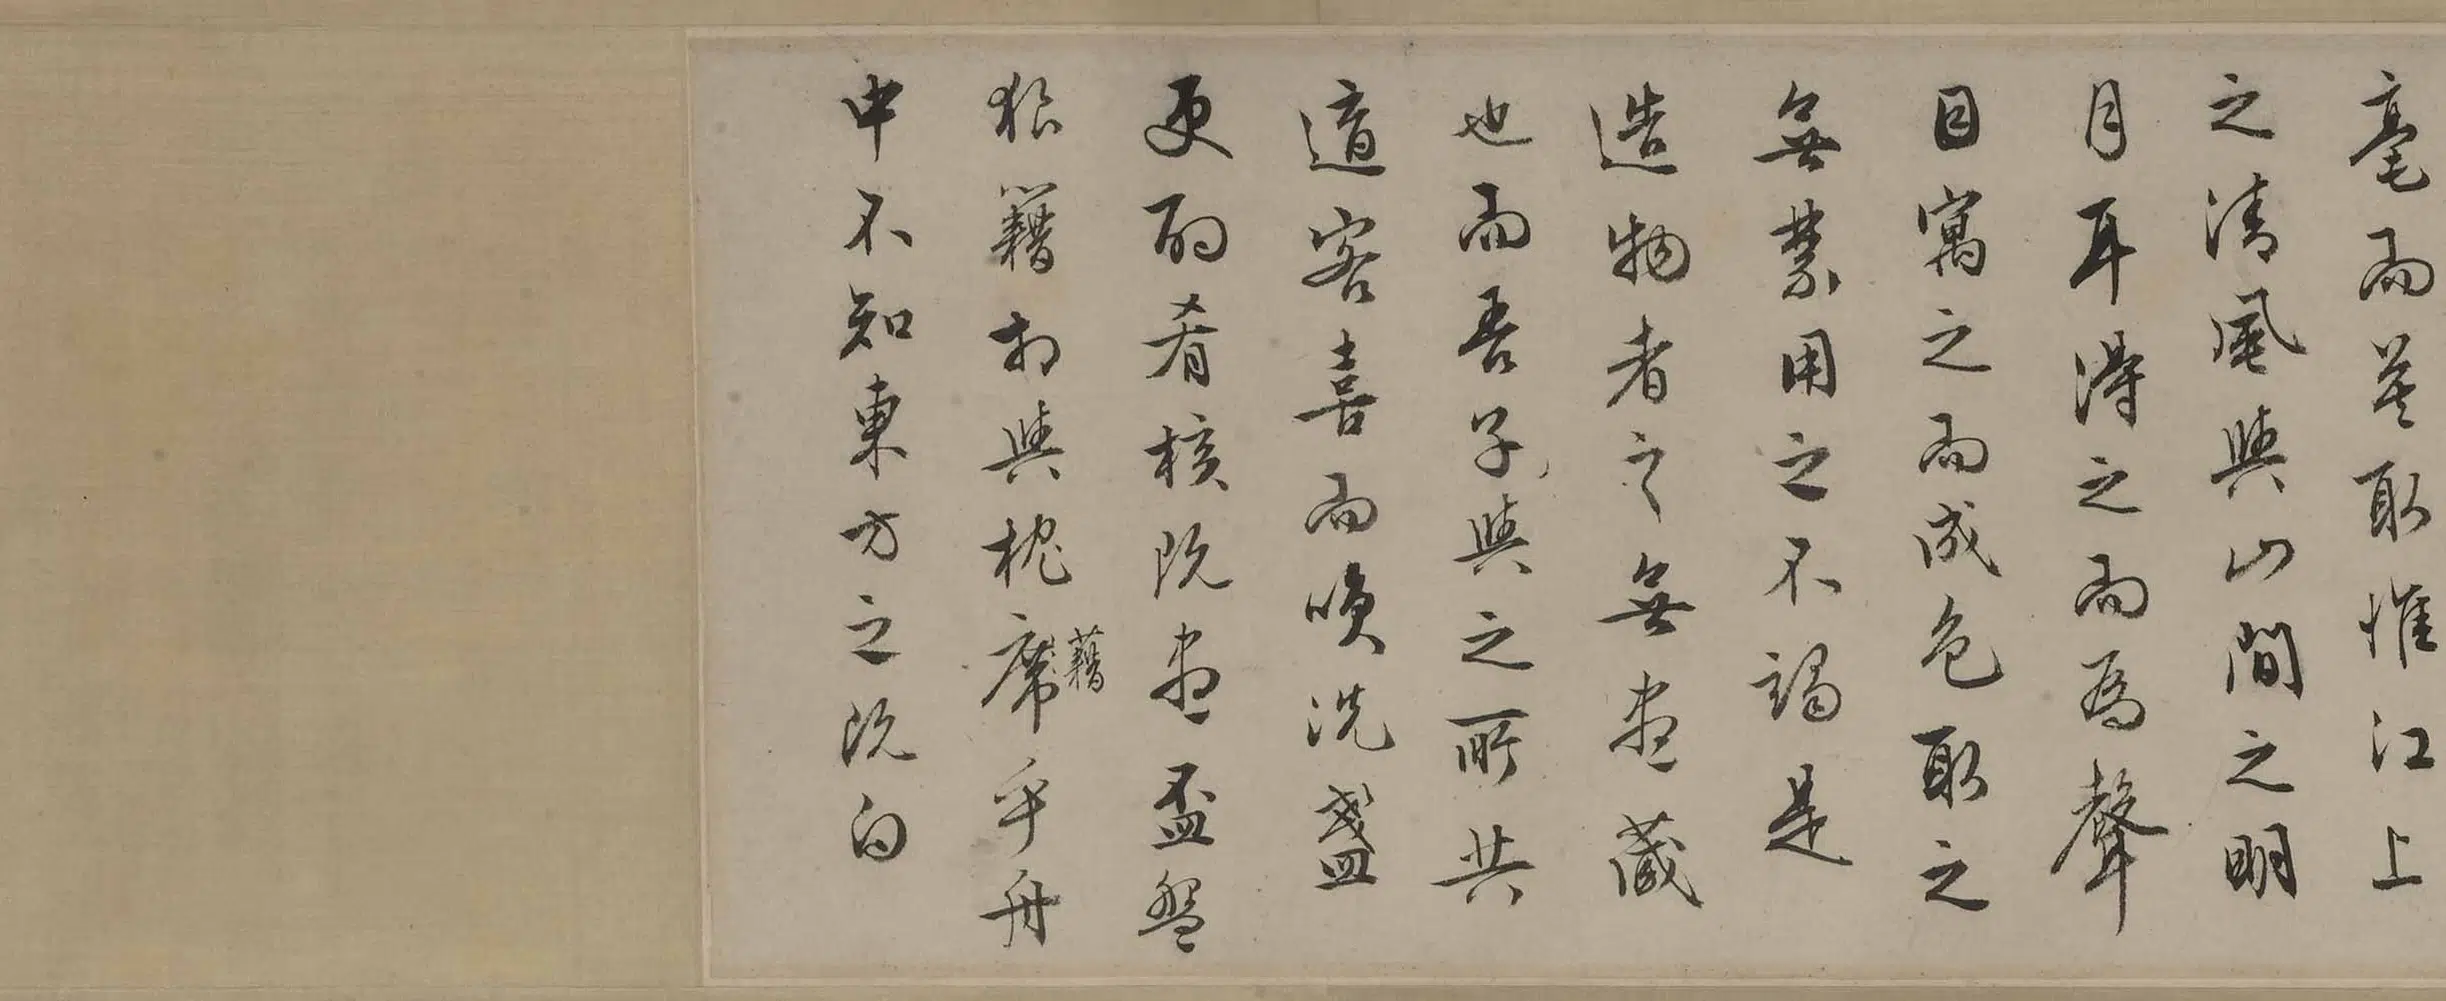 毫而莫取惟江上
之清風與山間之明
月耳得之而為聲
目寓之而成色取之
無禁用之不竭是
造物者之無盡藏
也而吾子與之所共
適客喜而咲洗盞
更酌肴核既盡盃盤
狼籍相與枕席乎舟
藉
中不知東方之既白